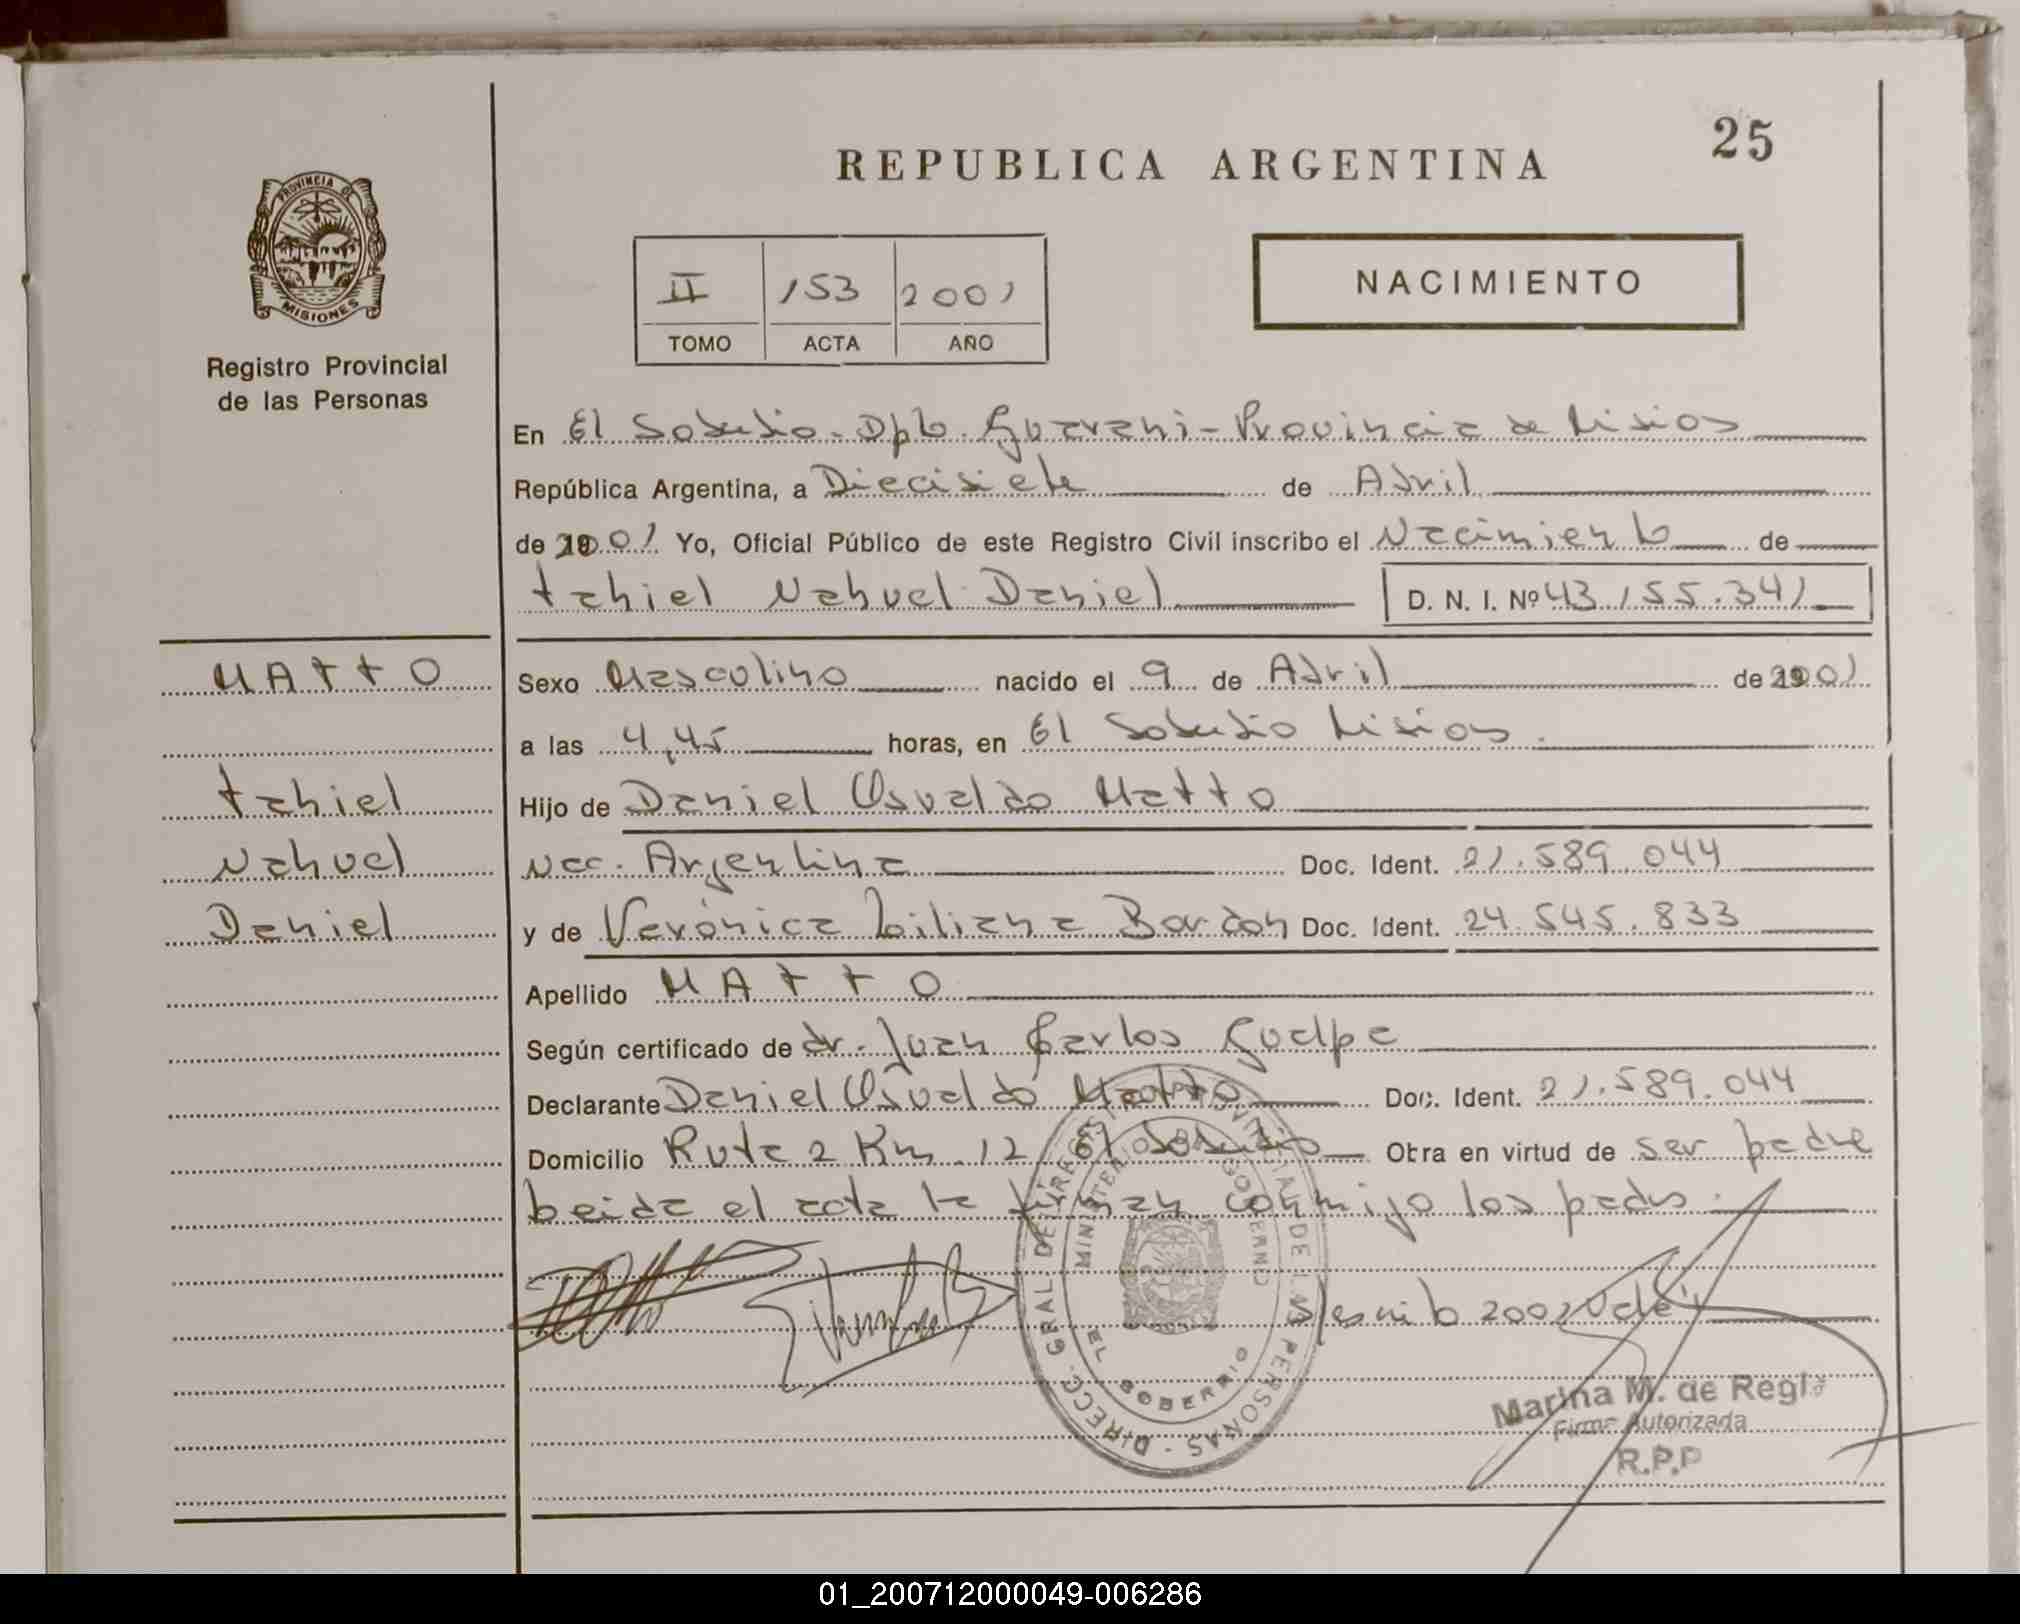 25
REPUBLICA ARGENTINA
PROVINCIA DE
MISIONES
Registro Provincial
de las Personas
II 153 2001
TOMO ACTA AÑO
NACIMIENTO
En El Soberbio - Dpto. Guarani - Provincia de Misiones
República Argentina, a Diecisiete de Abril
de 2001 Yo, Oficial Público de este Registro Civil inscribo el Nacimiento de
Tahiel Nahuel Daniel D. N. I. Nº 43.155.341
MATTO
Sexo Masculino nacido el 9 de Abril de 2001
a las 4,45 horas, en El Soberbio Misiones.
Tahiel
Hijo de Daniel Osvaldo Matto
Nahuel
Nac. Argentina Doc. Ident. 21.589.044
Daniel
y de Verónica Liliana Bordon Doc. Ident. 24.545.833
Apellido MATTO
Según certificado de dr. Juan Carlos Guelpa
Declarante Daniel Osvaldo Matto Doc. Ident. 21.589.044
Domicilio Ruta 2 Km. 12 El Soberbio Obra en virtud de ser padre
leida el acta la firman conmigo los padres.
2001 Vale
DIRECC. GRAL DE REGISTRO PROVINCIAL DE LAS PERSONAS
MINISTERIO DE GOBIERNO
EL SOBERBIO
Marina M. de Regla
Firma Autorizada
R.P.P
01_200712000049-006286